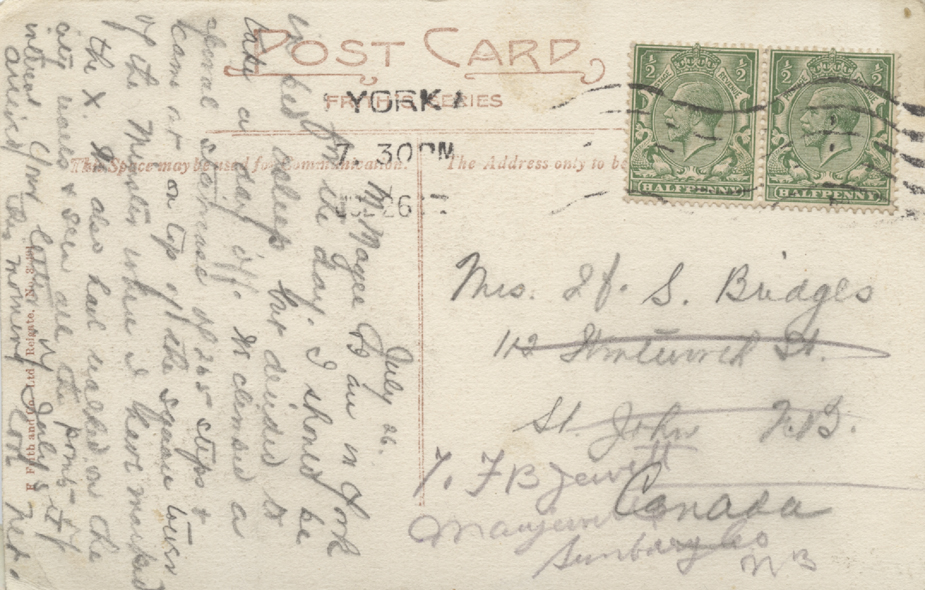 POST CARD
FROM THIS SERIES
YORK
7 30PM
26
This Space may be used for Communication.
The Address only to be
½ ½
HALFPENNY
½ ½
HALFPENNY
July 26.
Magee & I am in York
for the day. I should be
in bed asleep but decided to
take a day off. We climbed a
spiral staircase of 265 steps &
came out on top of the square tower
of the Minster where I have marked
the X. We also had walked on the
city walls & seen all the points of
interest. Your letter of July 5
arrived this morning.
F. Frith and Co. Ltd. Reigate. No.
Mrs. H. S. Bridges
112 Wentworth St.
St. John N.B.
Canada
F B Jewett
Sunbury Co
NB